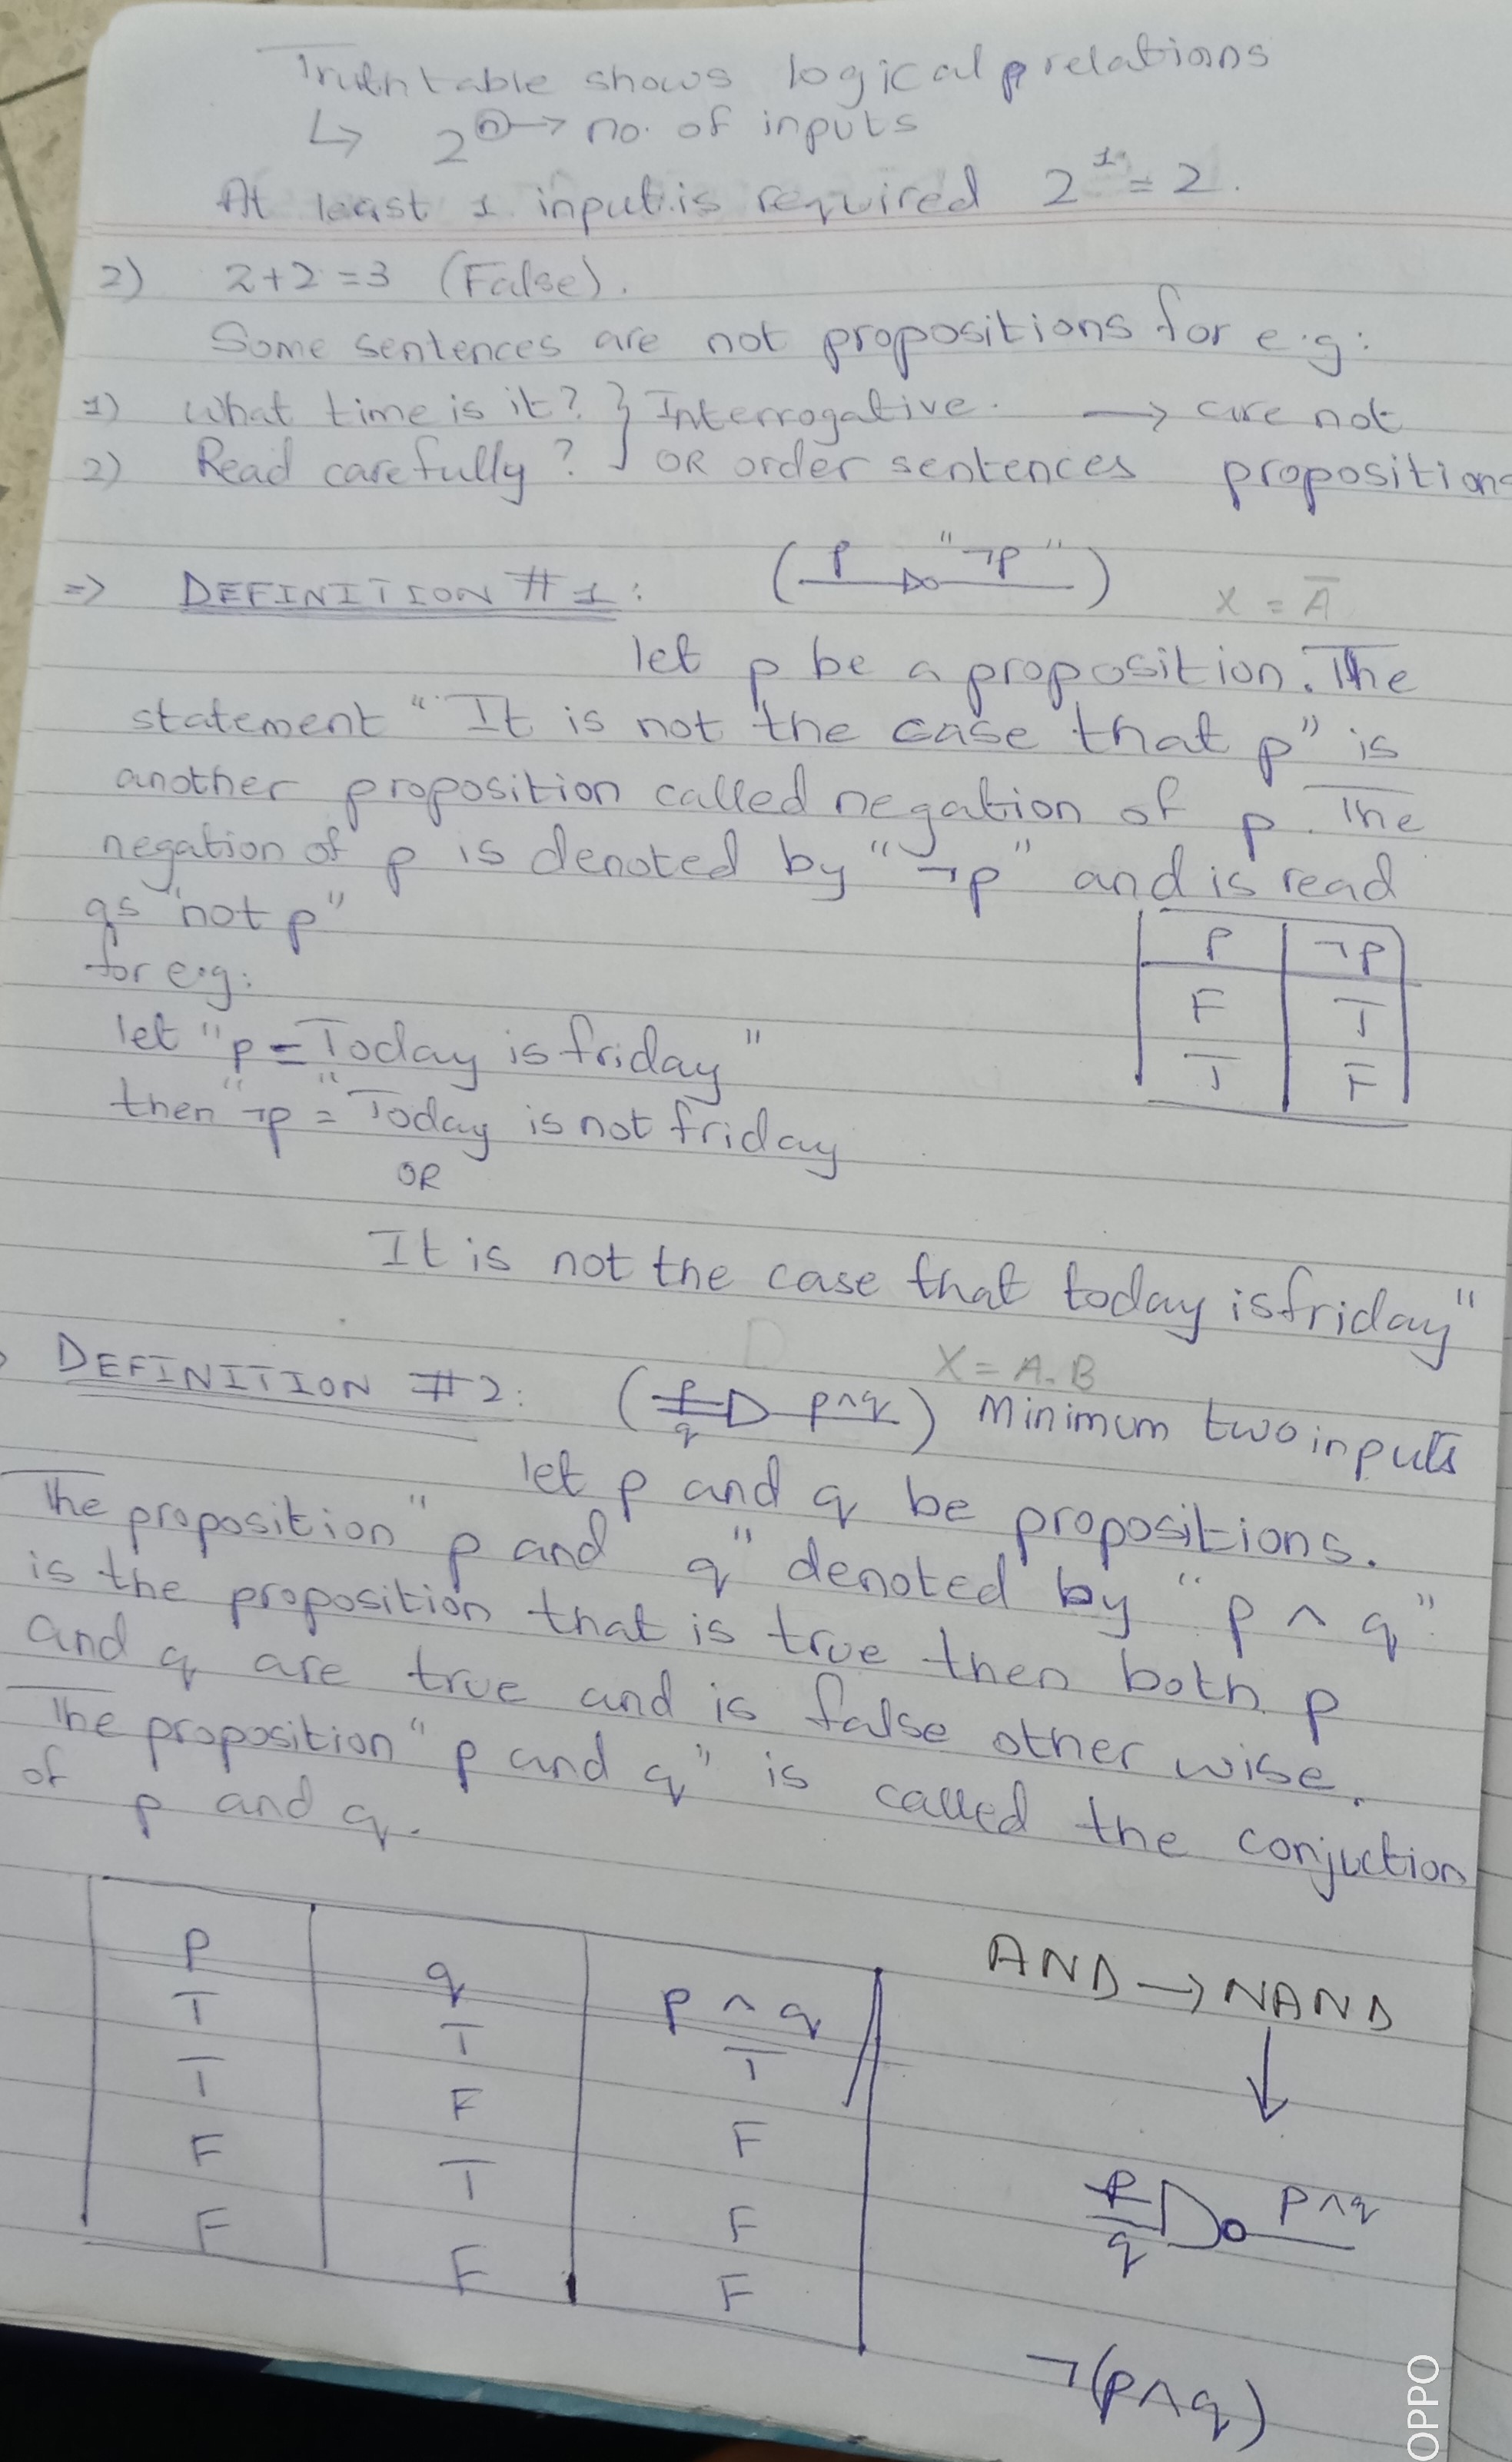 Truth table shows logical p relations
↳ 2ⁿ → no. of inputs
At least 1 input is required 2¹ = 2.
2) 2+2 = 3 (False).
Some sentences are not propositions for e.g:
1) What time is it? } Interrogative. → are not
2) Read carefully? } OR order sentences propositions
=> DEFINITION #1: ( p "¬p" ) X = A̅
let p be a proposition. The
statement "It is not the case that p" is
another proposition called negation of p. The
negation of p is denoted by "¬p" and is read
as "not p"
for e.g:
let "p = Today is friday"
then "¬p = "Today is not friday
OR
It is not the case that today is friday"
P ¬p
F T
T F
DEFINITION #2: ( p q p^q ) Minimum two inputs
X = A.B
let p and q be propositions.
The proposition "p and q" denoted by "p ^ q"
is the proposition that is true then both p
and q are true and is false other wise.
The proposition "p and q" is called the conjuction
of p and q.
P q p ^ q
T T T
T F F
F T F
F F F
AND → NAND
↓
p q p^q
¬(p^q)
OPPO